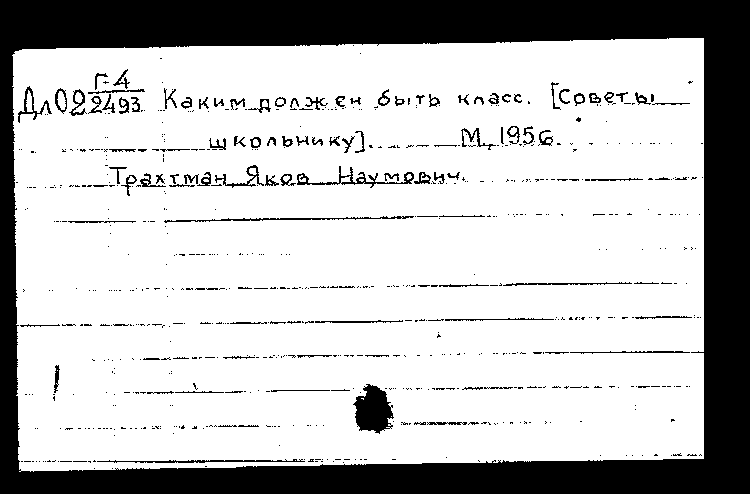 Дл02 Г-4/2493 Каким должен быть класс. [Советы
школьнику]. М, 1956.
Трахтман Яков Наумович.